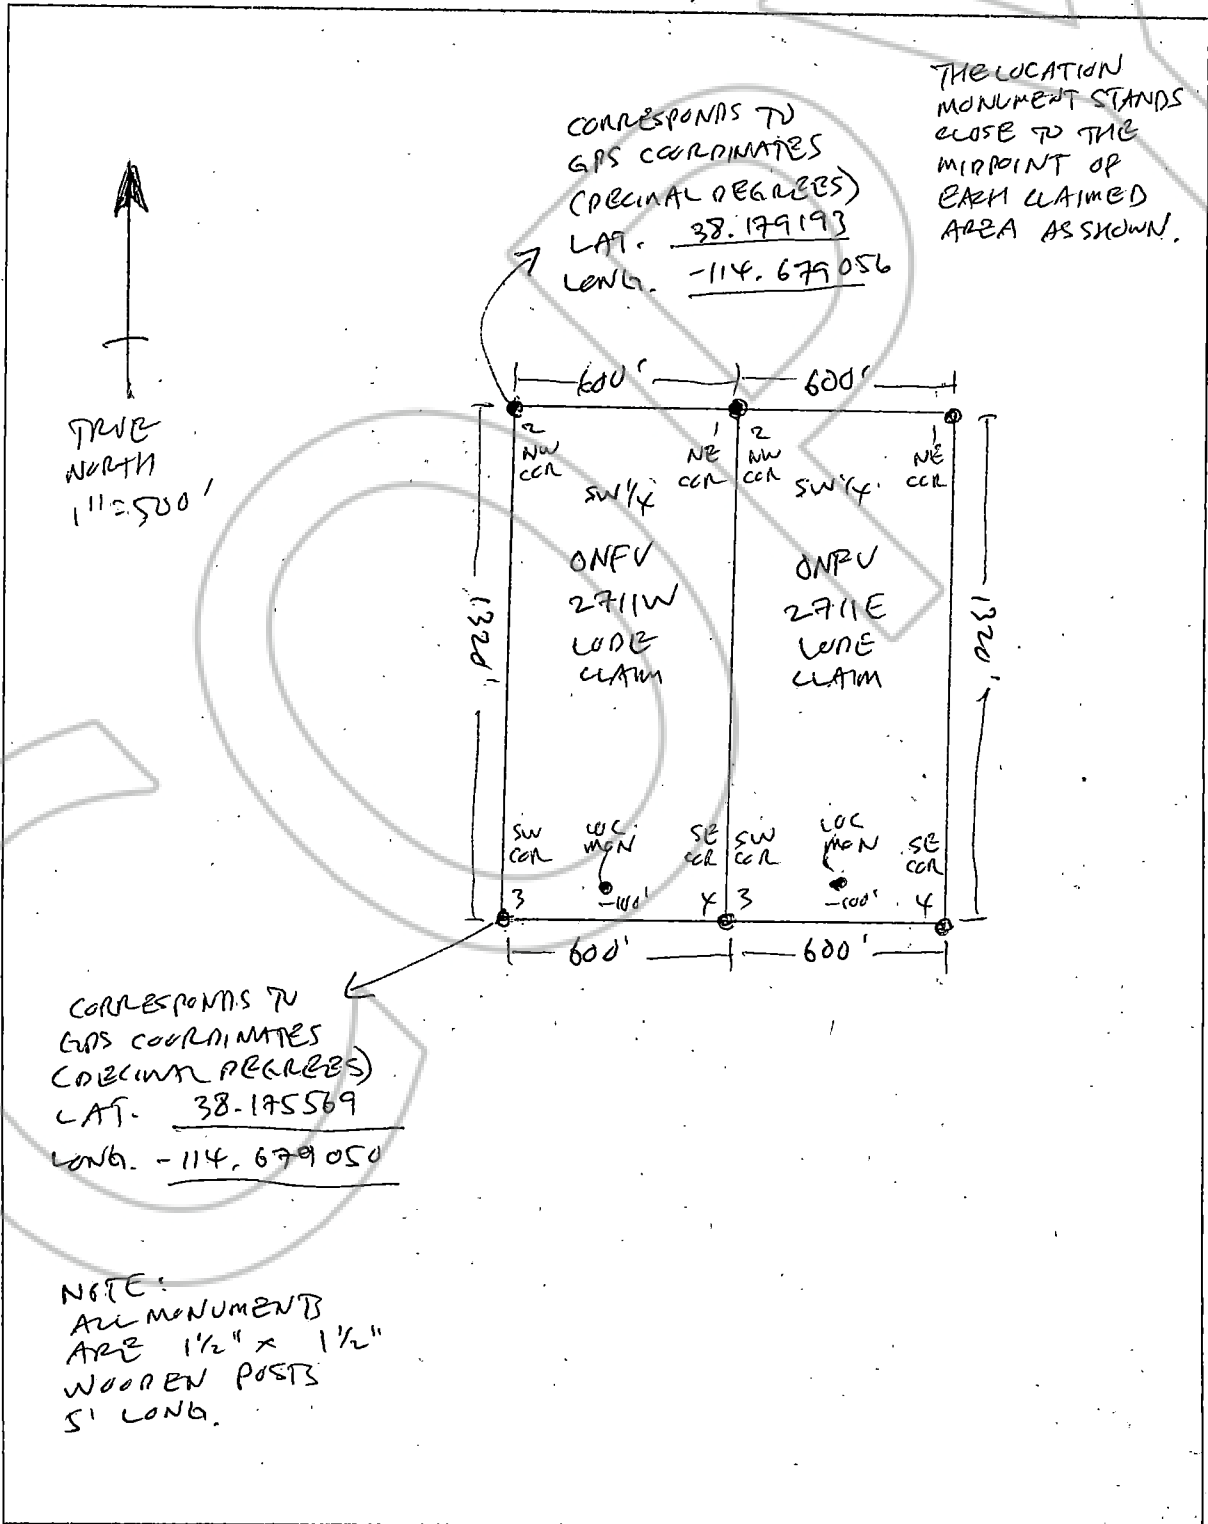 THE LOCATION
MONUMENT STANDS
CLOSE TO THE
MIDPOINT OF
EACH CLAIMED
AREA AS SHOWN.
CORRESPONDS TO
GPS COORDINATES
(DECIMAL DEGREES)
LAT. 38.179193
LONG. -114.679056
TRUE
NORTH
1"=500'
600' 600'
2 NW COR
1 NE COR
2 NW COR
1 NE COR
SW 1/4 SW 1/4
ONFV
2711W
LODE
CLAIM
ONFV
2711E
LODE
CLAIM
1320'
1320'
SW COR
LOC MON
SE COR
SW COR
LOC MON
SE COR
3 -100' 4 3 -100' 4
600' 600'
CORRESPONDS TO
GPS COORDINATES
(DECIMAL DEGREES)
LAT. 38.175569
LONG. -114.679050
NOTE:
ALL MONUMENTS
ARE 1 1/2" x 1 1/2"
WOODEN POSTS
5' LONG.
COPY